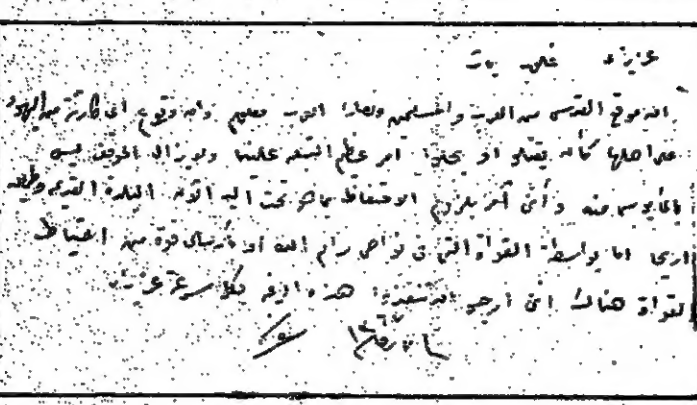 عزيزي غلوب باشا
ان موقع القدس من العرب والمسلمين ونصارى العرب معلوم وان وقوع اي كارثة من اليهود
على اهلها كأن يقتلوا او يجلوا امر عظيم التبعة علينا ولا يزال الموقف ليس
بالمأيوس منه وأني آمر بلزوم الاحتفاظ بما هو تحت اليد الآن البلدة القديمة وطريق
اريحا اما بواسطة القواة التي في نواحي رام الله او بأرسال قوة من احتياط
القواة هناك اني ارجو ان تنفذوا هذه الرغبة بكل سرعة عزيزي